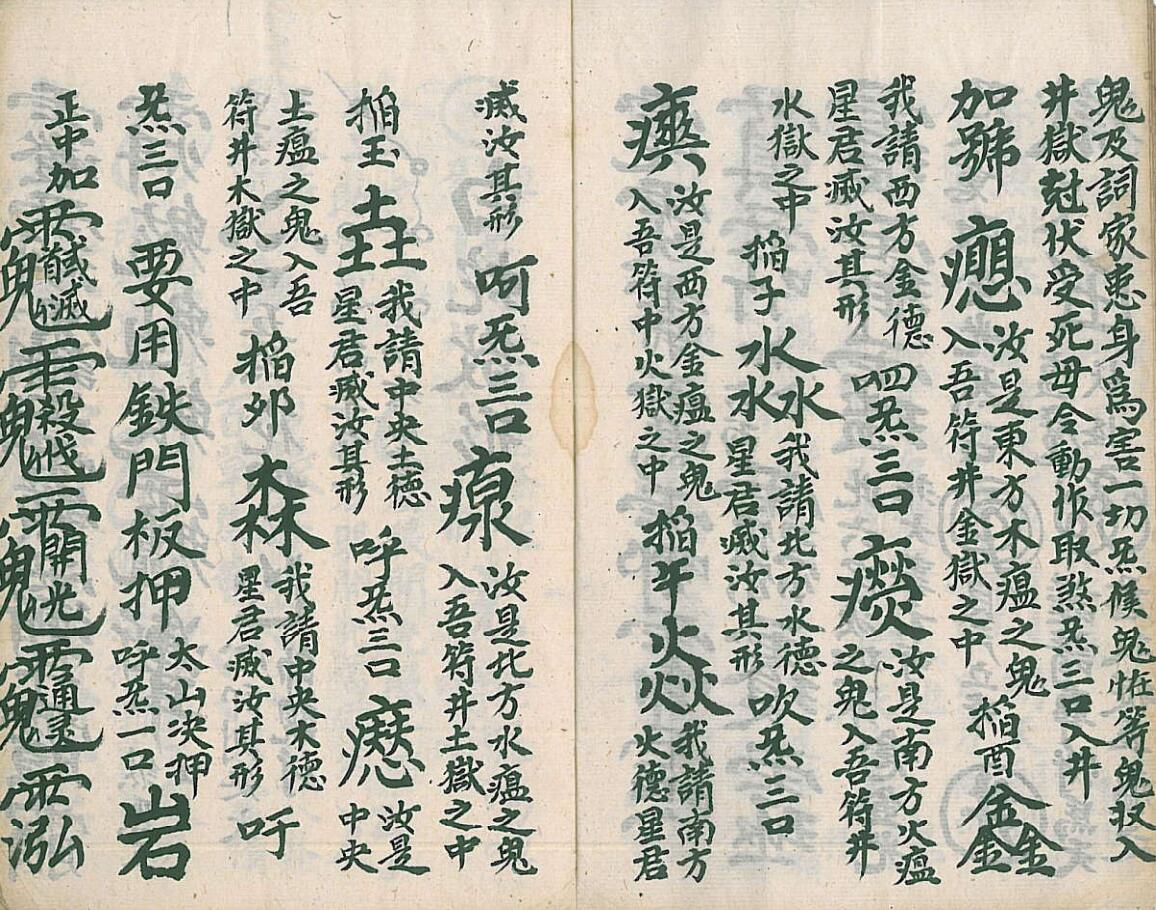 鬼及詞家患身為害一切炁候鬼怪等鬼収入
井獄尅伏受死毋令動作取煞炁三口入井
加號
汝是東方木瘟之鬼
入吾符井金獄之中
掐酉 鑫
我請西方金德
星君滅汝其形
呬炁三口
汝是南方火瘟
之鬼入吾符井
水獄之中
掐子 淼
我請北方水德
星君滅汝其形
吹炁三口
汝是西方金瘟之鬼
入吾符中火獄之中
掐午 焱
我請南方
火德星君
滅汝其形
呵炁三口
汝是北方水瘟之鬼
入吾符井土獄之中
掐玉 垚
我請中央土德
星君滅汝其形
呼炁三口
汝是
中央
土瘟之鬼入吾
符井木獄之中
掐卯 森
我請中央木德
星君滅汝其形
吁
炁三口 要用鉄門板押
太山決押
呼炁一口
岩
正中加